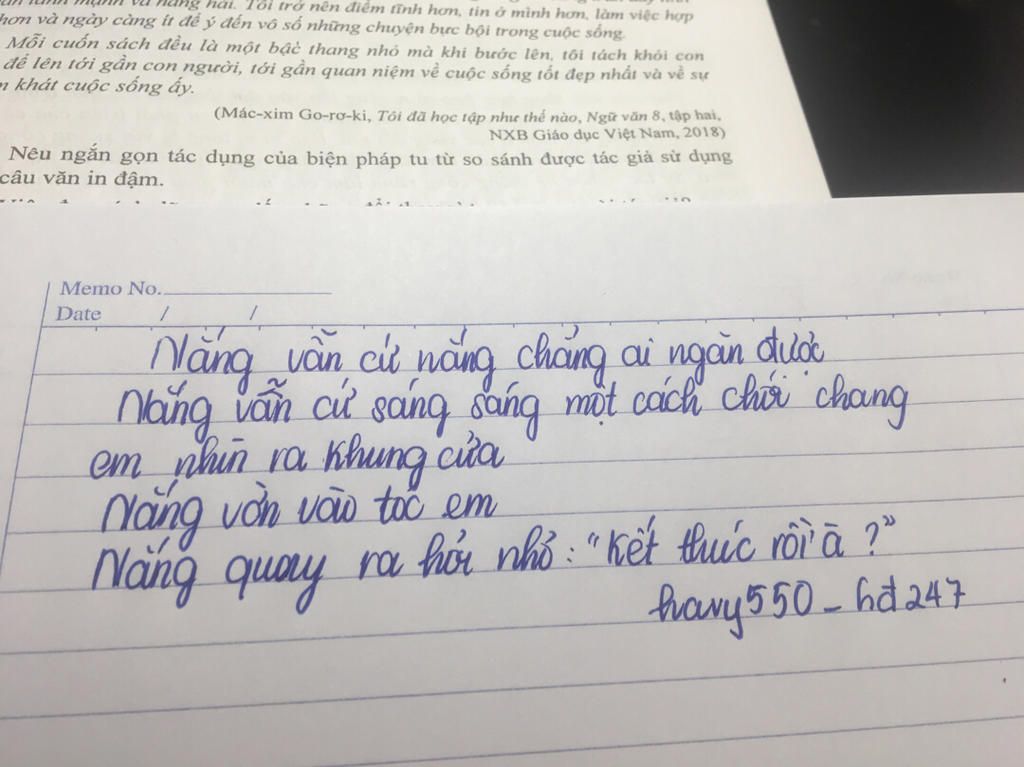 mạnh và hăng hái. Tôi trở nên điềm tĩnh hơn, tin ở mình hơn, làm việc hợp
hơn và ngày càng ít để ý đến vô số những chuyện bực bội trong cuộc sống.
Mỗi cuốn sách đều là một bậc thang nhỏ mà khi bước lên, tôi tách khỏi con
để lên tới gần con người, tới gần quan niệm về cuộc sống tốt đẹp nhất và về sự
khát cuộc sống ấy.
(Mác-xim Go-rơ-ki, Tôi đã học tập như thế nào, Ngữ văn 8, tập hai,
NXB Giáo dục Việt Nam, 2018)
Nêu ngắn gọn tác dụng của biện pháp tu từ so sánh được tác giả sử dụng
câu văn in đậm.
Memo No.
Date / /
Nắng vẫn cứ nắng chẳng ai ngăn được
Nắng vẫn cứ sáng sáng một cách chói chang
em nhìn ra khung cửa
Nắng vờn vào tóc em
Nắng quay ra hỏi nhỏ: "Kết thúc rồi à?"
havy550_hđ247